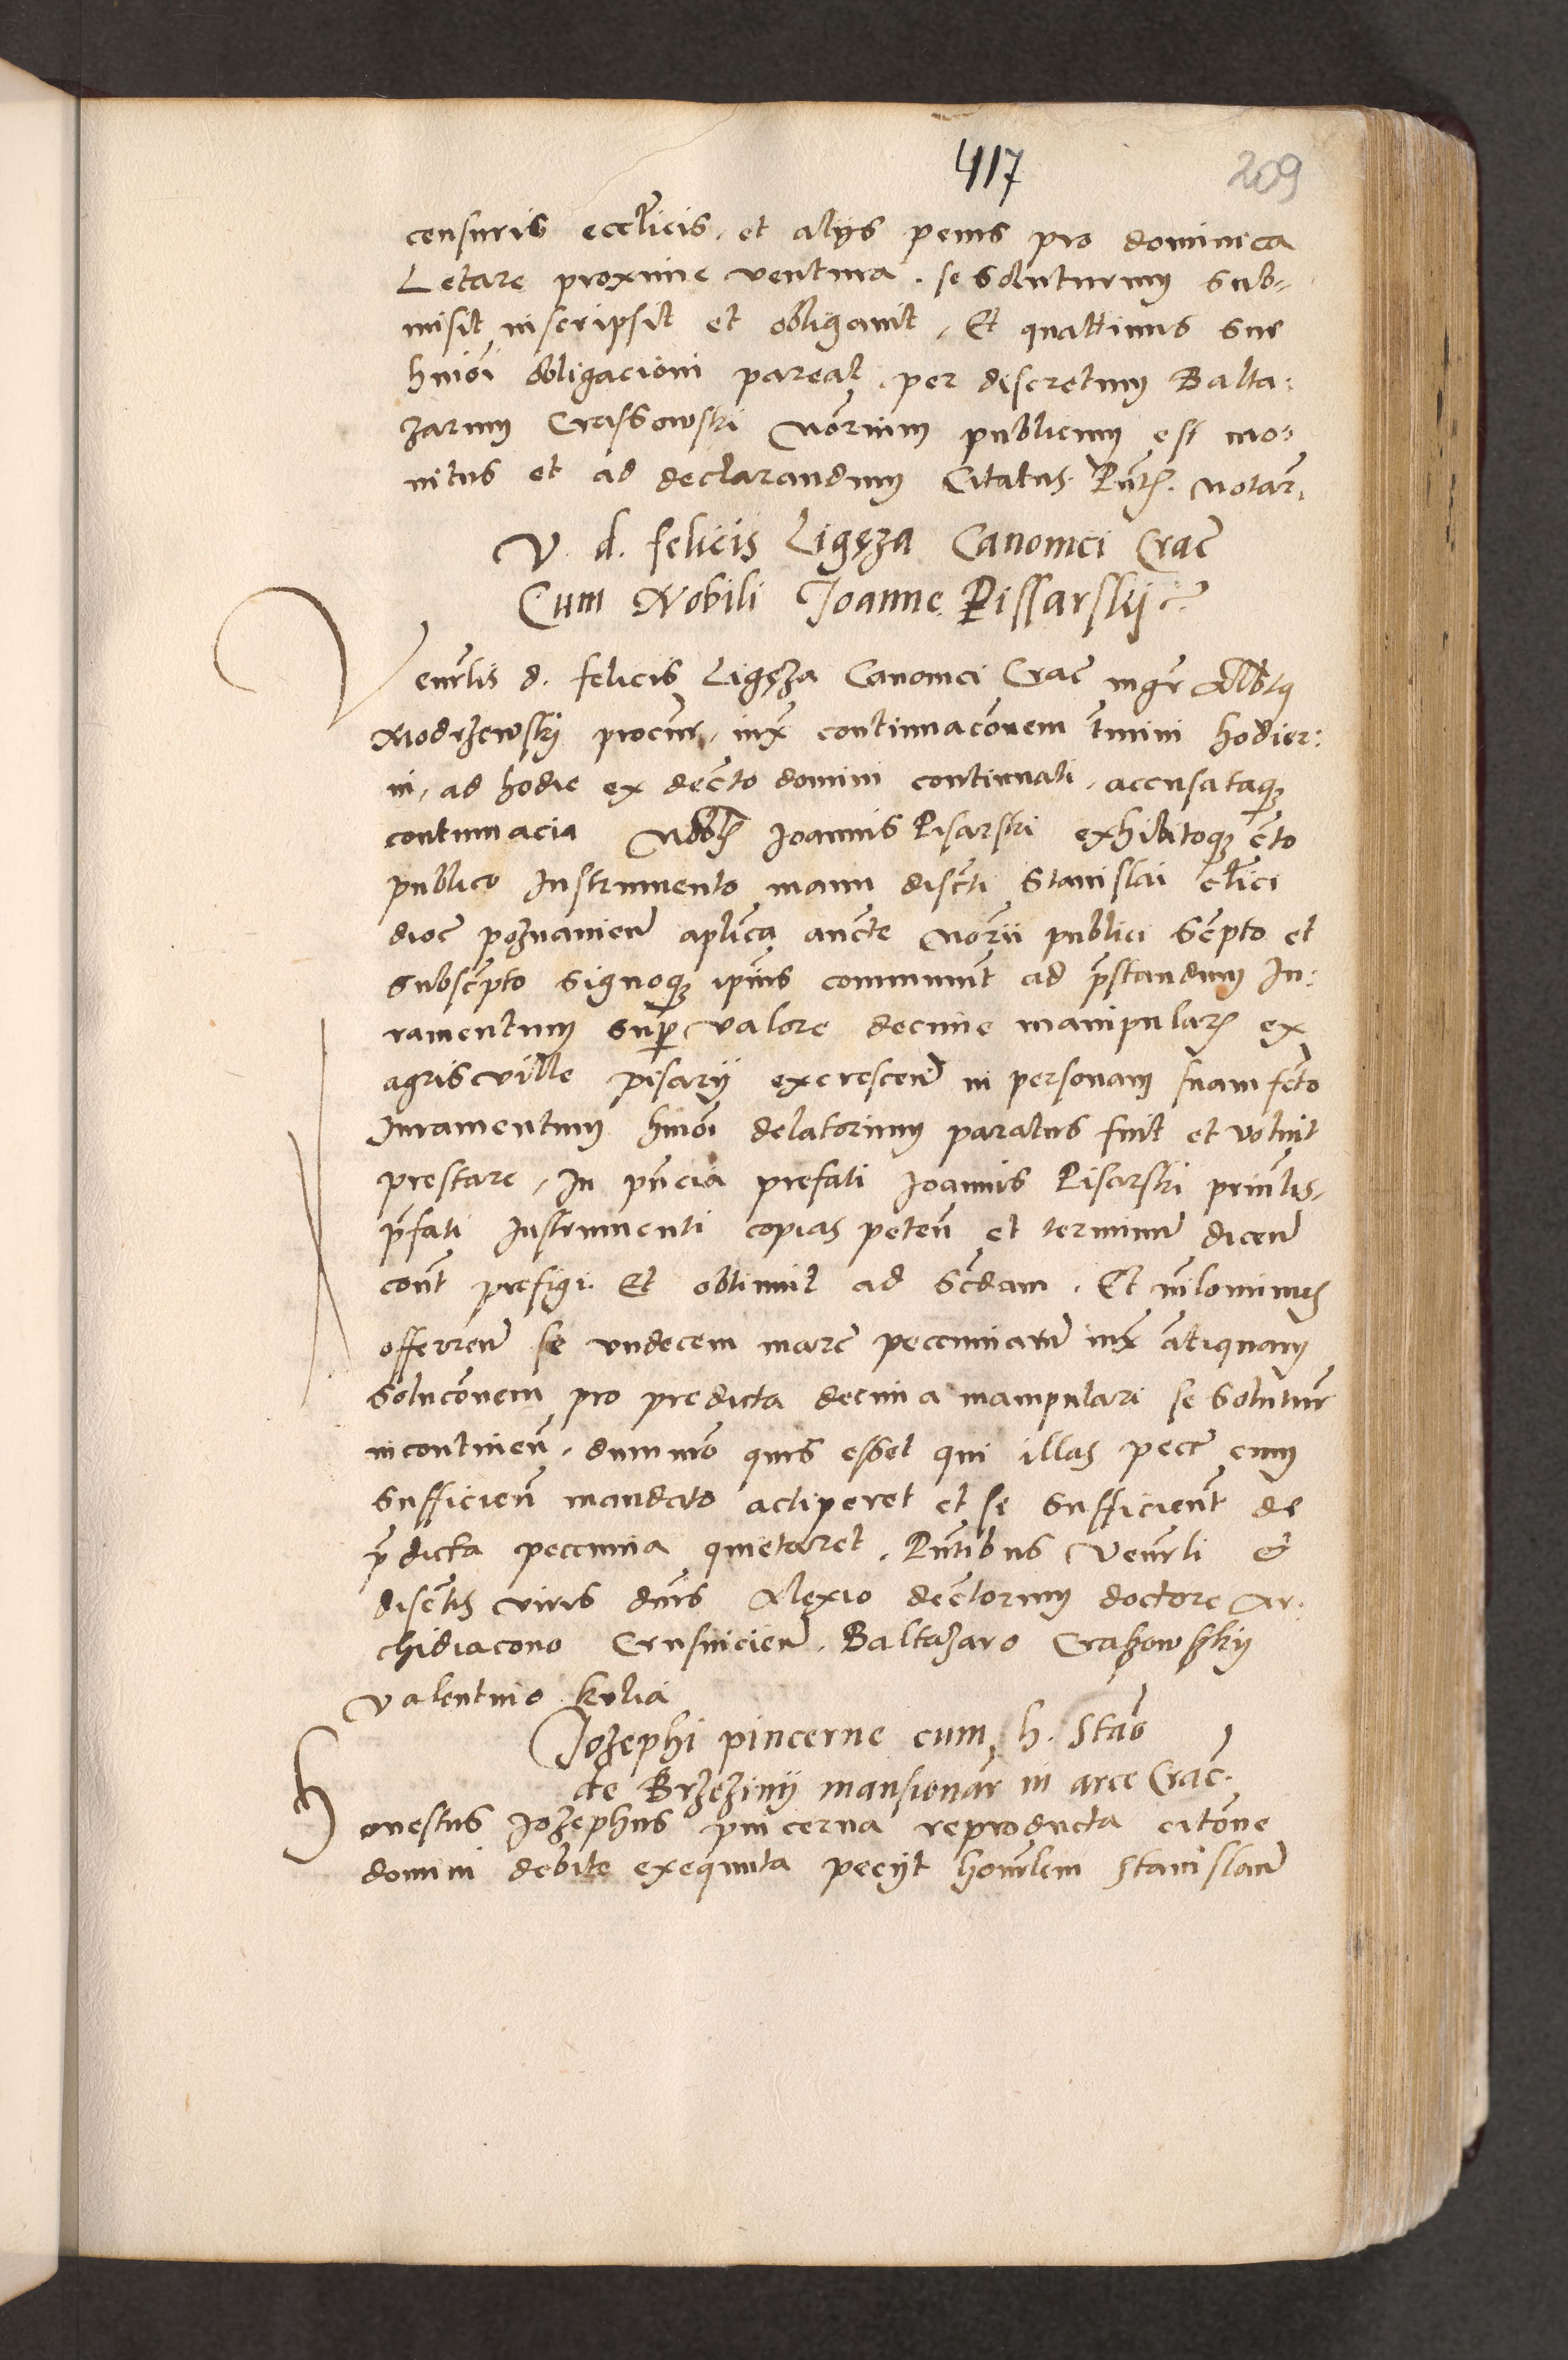 417
209
censuris eccl̄icis. et alÿs penis pro dominica
Letare proxime ventura. se soluturum sub-
misit inscripsit et obligavit, Et quattinus sue
hmōi obligacioni pareat, per discretum Balta-
zarum Crassowski nōrium publicum est mo-
nitus et ad declarandum Citatus. Pn̄tz. notar.
V. d. felicis Ligęza Canonici Crac̄
Cum Nobili Joanne Pissarskj
Venerlis d. felicis Ligęza Canonici Crac̄ mgr̄ Albtus
Modrzewskÿ procur̄, iux̄ continuac̄onem t̄mini hodier-
ni, ad hodie ex dec̄to domini continuati, accusataqz
contumacia Nobl̄ Joannis Pisarski exhibitoqz c̄to
publico Instrumento manu disc̄ti Stanislai cl̄ici
dioc̄ poznanien̄ aplica auc̄te nōrii publici sc̄pto et
subsc̄pto signoqz ip̄ius communit̄ ad p̄standum Ju-
ramentum sup̄ valore decime manipularz ex
agris ville pisarÿ excrescen̄ in personam suam fc̄to
Juramentum hmōi delatorium paratus fuit et voluit
prestare, In pn̄cia prefati Joannis Pisarski prin̄lis,
p̄fati Instrumenti copias peten̄ et terminum̄ dicen̄
cont̄ prefigi. Et obtinuit ad sc̄dam. Et nilominus
offerren̄ se vndecem marc̄ pecuniarum̄ iux̄ antiquam
soluc̄onem pro predicta decima manipulari se solutur̄
incontinen̄, dummo quis esset qui illas pecc̄ cum
sufficien̄ mandato acciperet et se sufficient̄ de
p̄dicta peccunia quietaret. Pn̄tibus Venerli et
disc̄tis viris dn̄is Alexio dec̄torum doctore Ar-
chidiacono Crusuicien̄. Baltazaro Crassowskÿ
Valentino Kelia
Jozephi pincerne cum h. Stan̄
de Brzezinÿ mansionar̄ in arce Crac̄.
Honestus Jozephus pincerna reproducta citōne
domini debite exequuta peciit honorlem Stanislaum̄